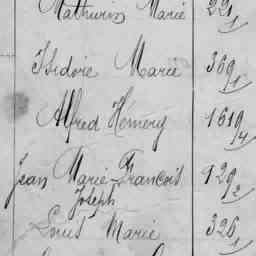 Mathurin Marie 221/1
Isidore Marie 369/1
Alfred Hémery 1619/4
Jean Marie François 929/2
Joseph
Louis Marie 326/1